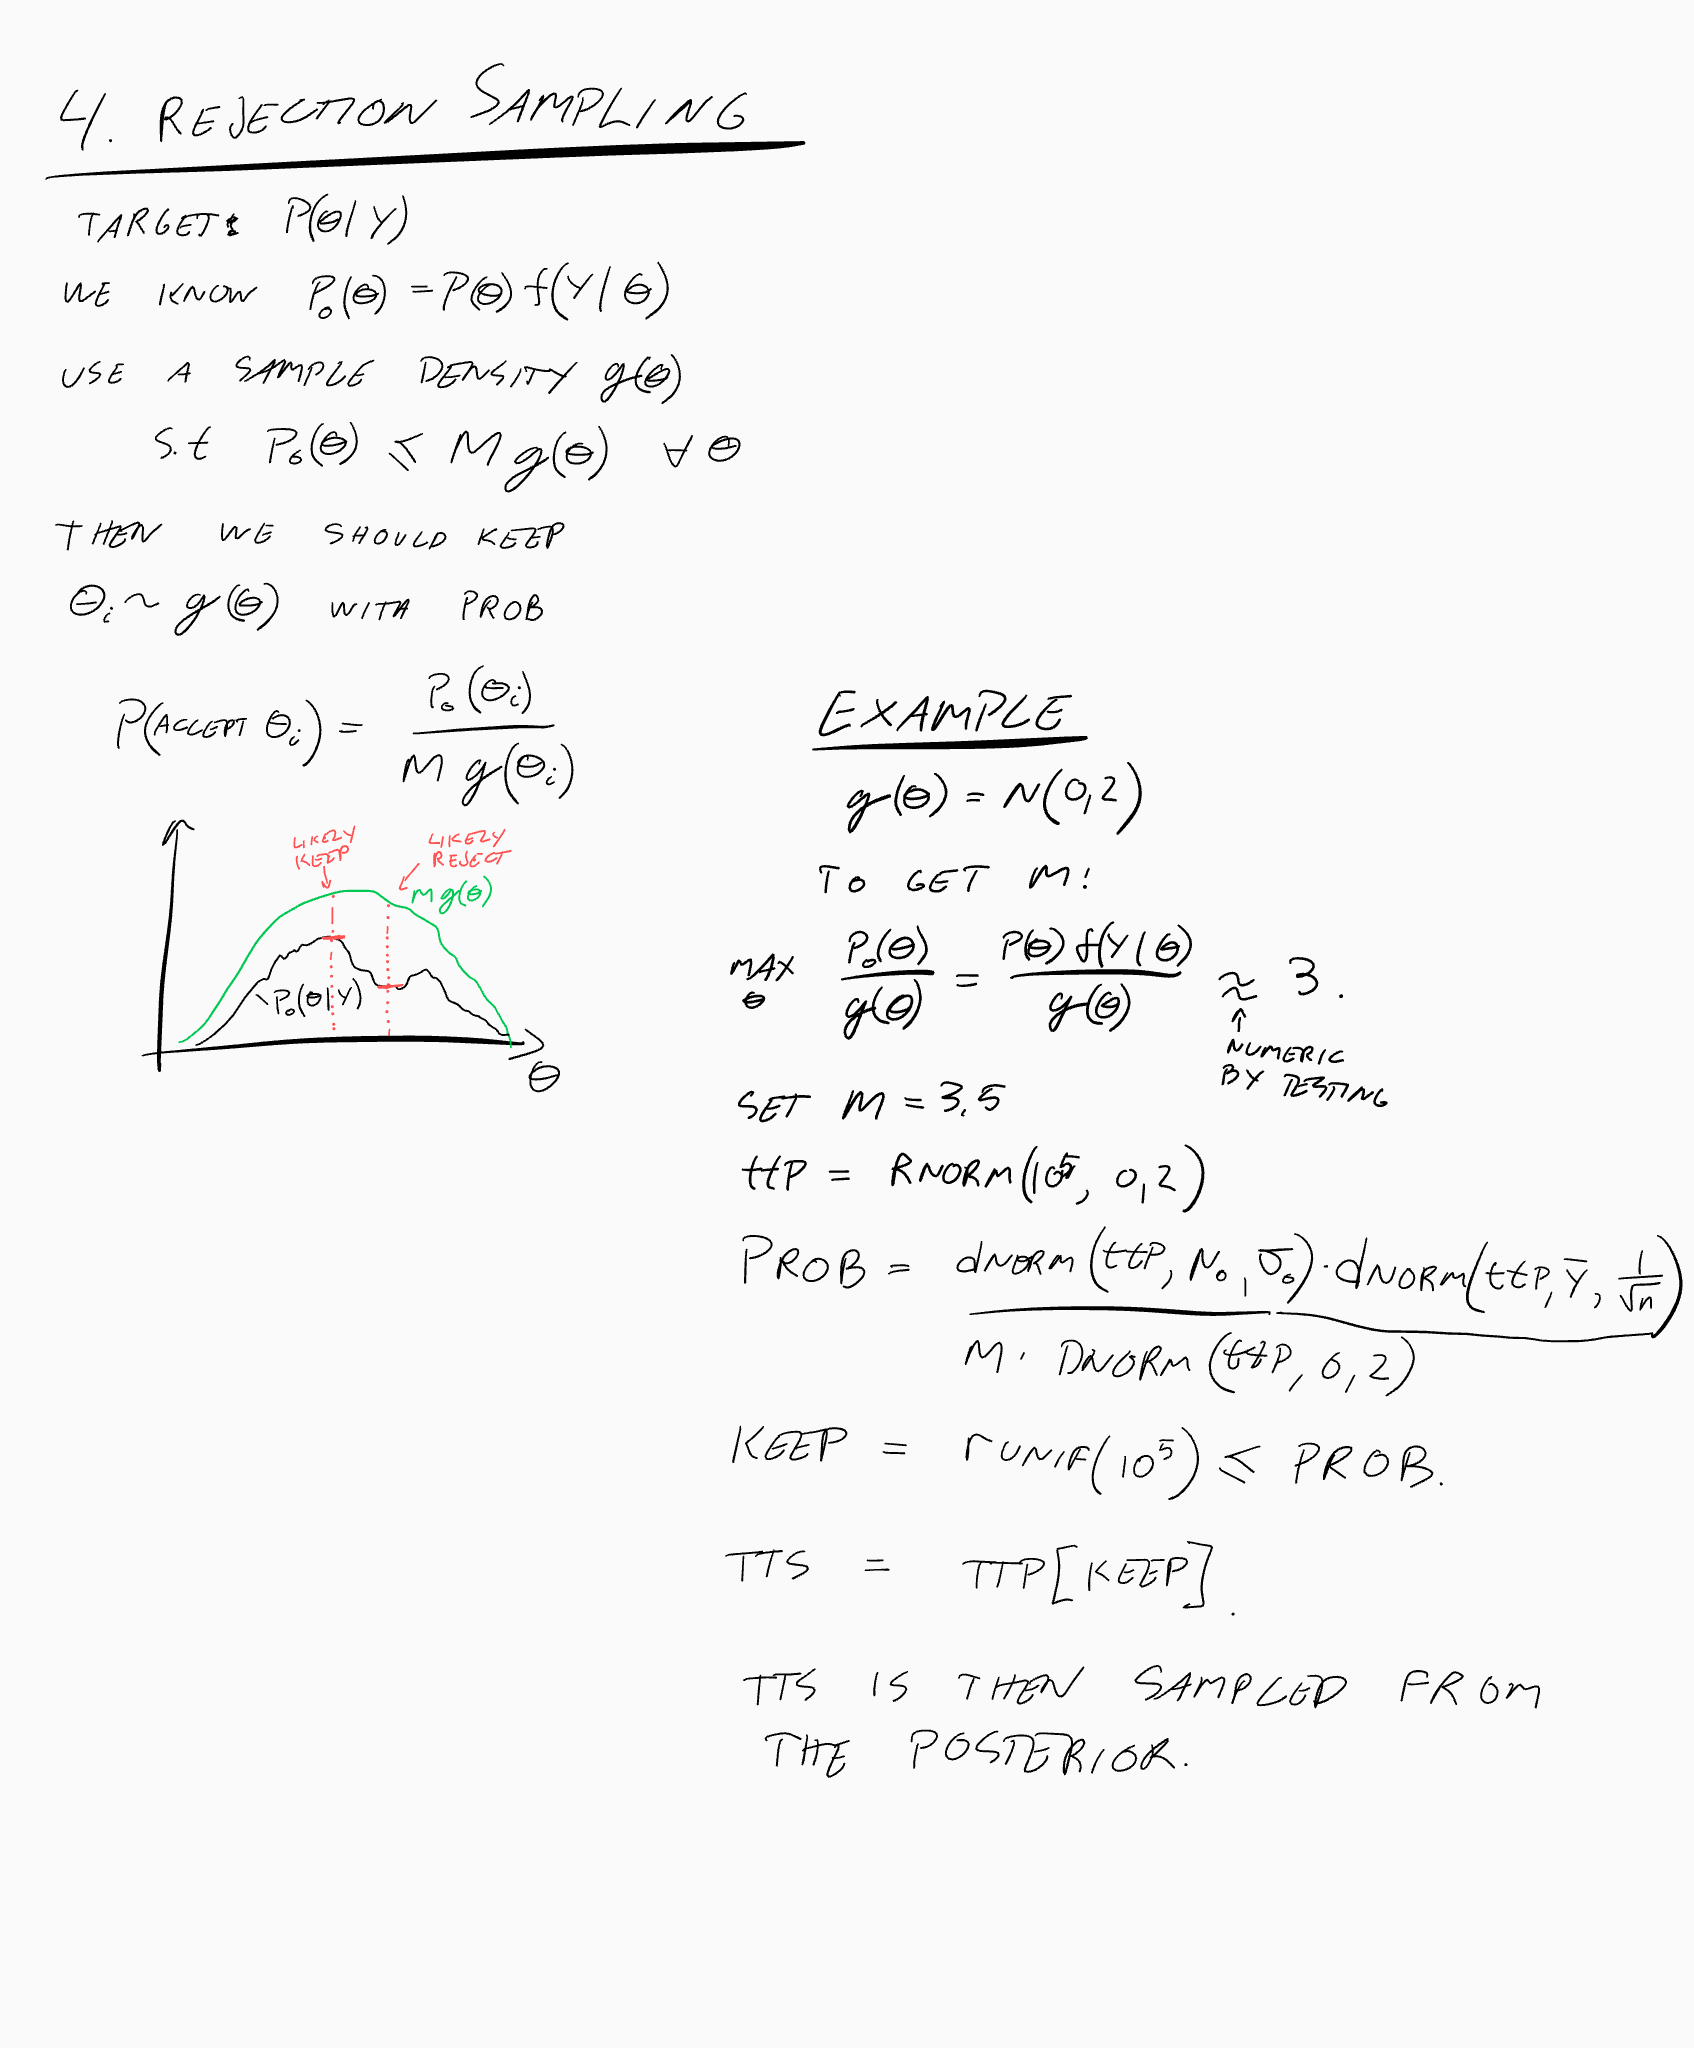 4. REJECTION SAMPLING
TARGET: P(θ|Y)
WE KNOW P₀(θ) = P(θ) f(Y|θ)
USE A SAMPLE DENSITY g(θ)
S.t P₀(θ) ≤ M g(θ) ∀ θ
THEN WE SHOULD KEEP
θᵢ ~ g(θ) WITH PROB
P(ACCEPT θᵢ) = P₀(θᵢ) / M g(θᵢ)
LIKELY
KEEP
LIKELY
REJECT
M g(θ)
P₀(θ|Y)
θ
EXAMPLE
g(θ) = N(0,2)
TO GET M:
MAX θ P₀(θ) / g(θ) = P(θ) f(Y|θ) / g(θ) ≈ 3.
↑
NUMERIC
BY TESTING
SET M = 3.5
ttP = RNORM(10⁵, 0,2)
PROB = dNORM(ttP, N₀, σ₀) · dNORM(ttP, Ȳ, 1/√n) / M · DNORM(ttP, 0,2)
KEEP = rUNIF(10⁵) ≤ PROB.
TTS = TTP[KEEP].
TTS IS THEN SAMPLED FROM
THE POSTERIOR.